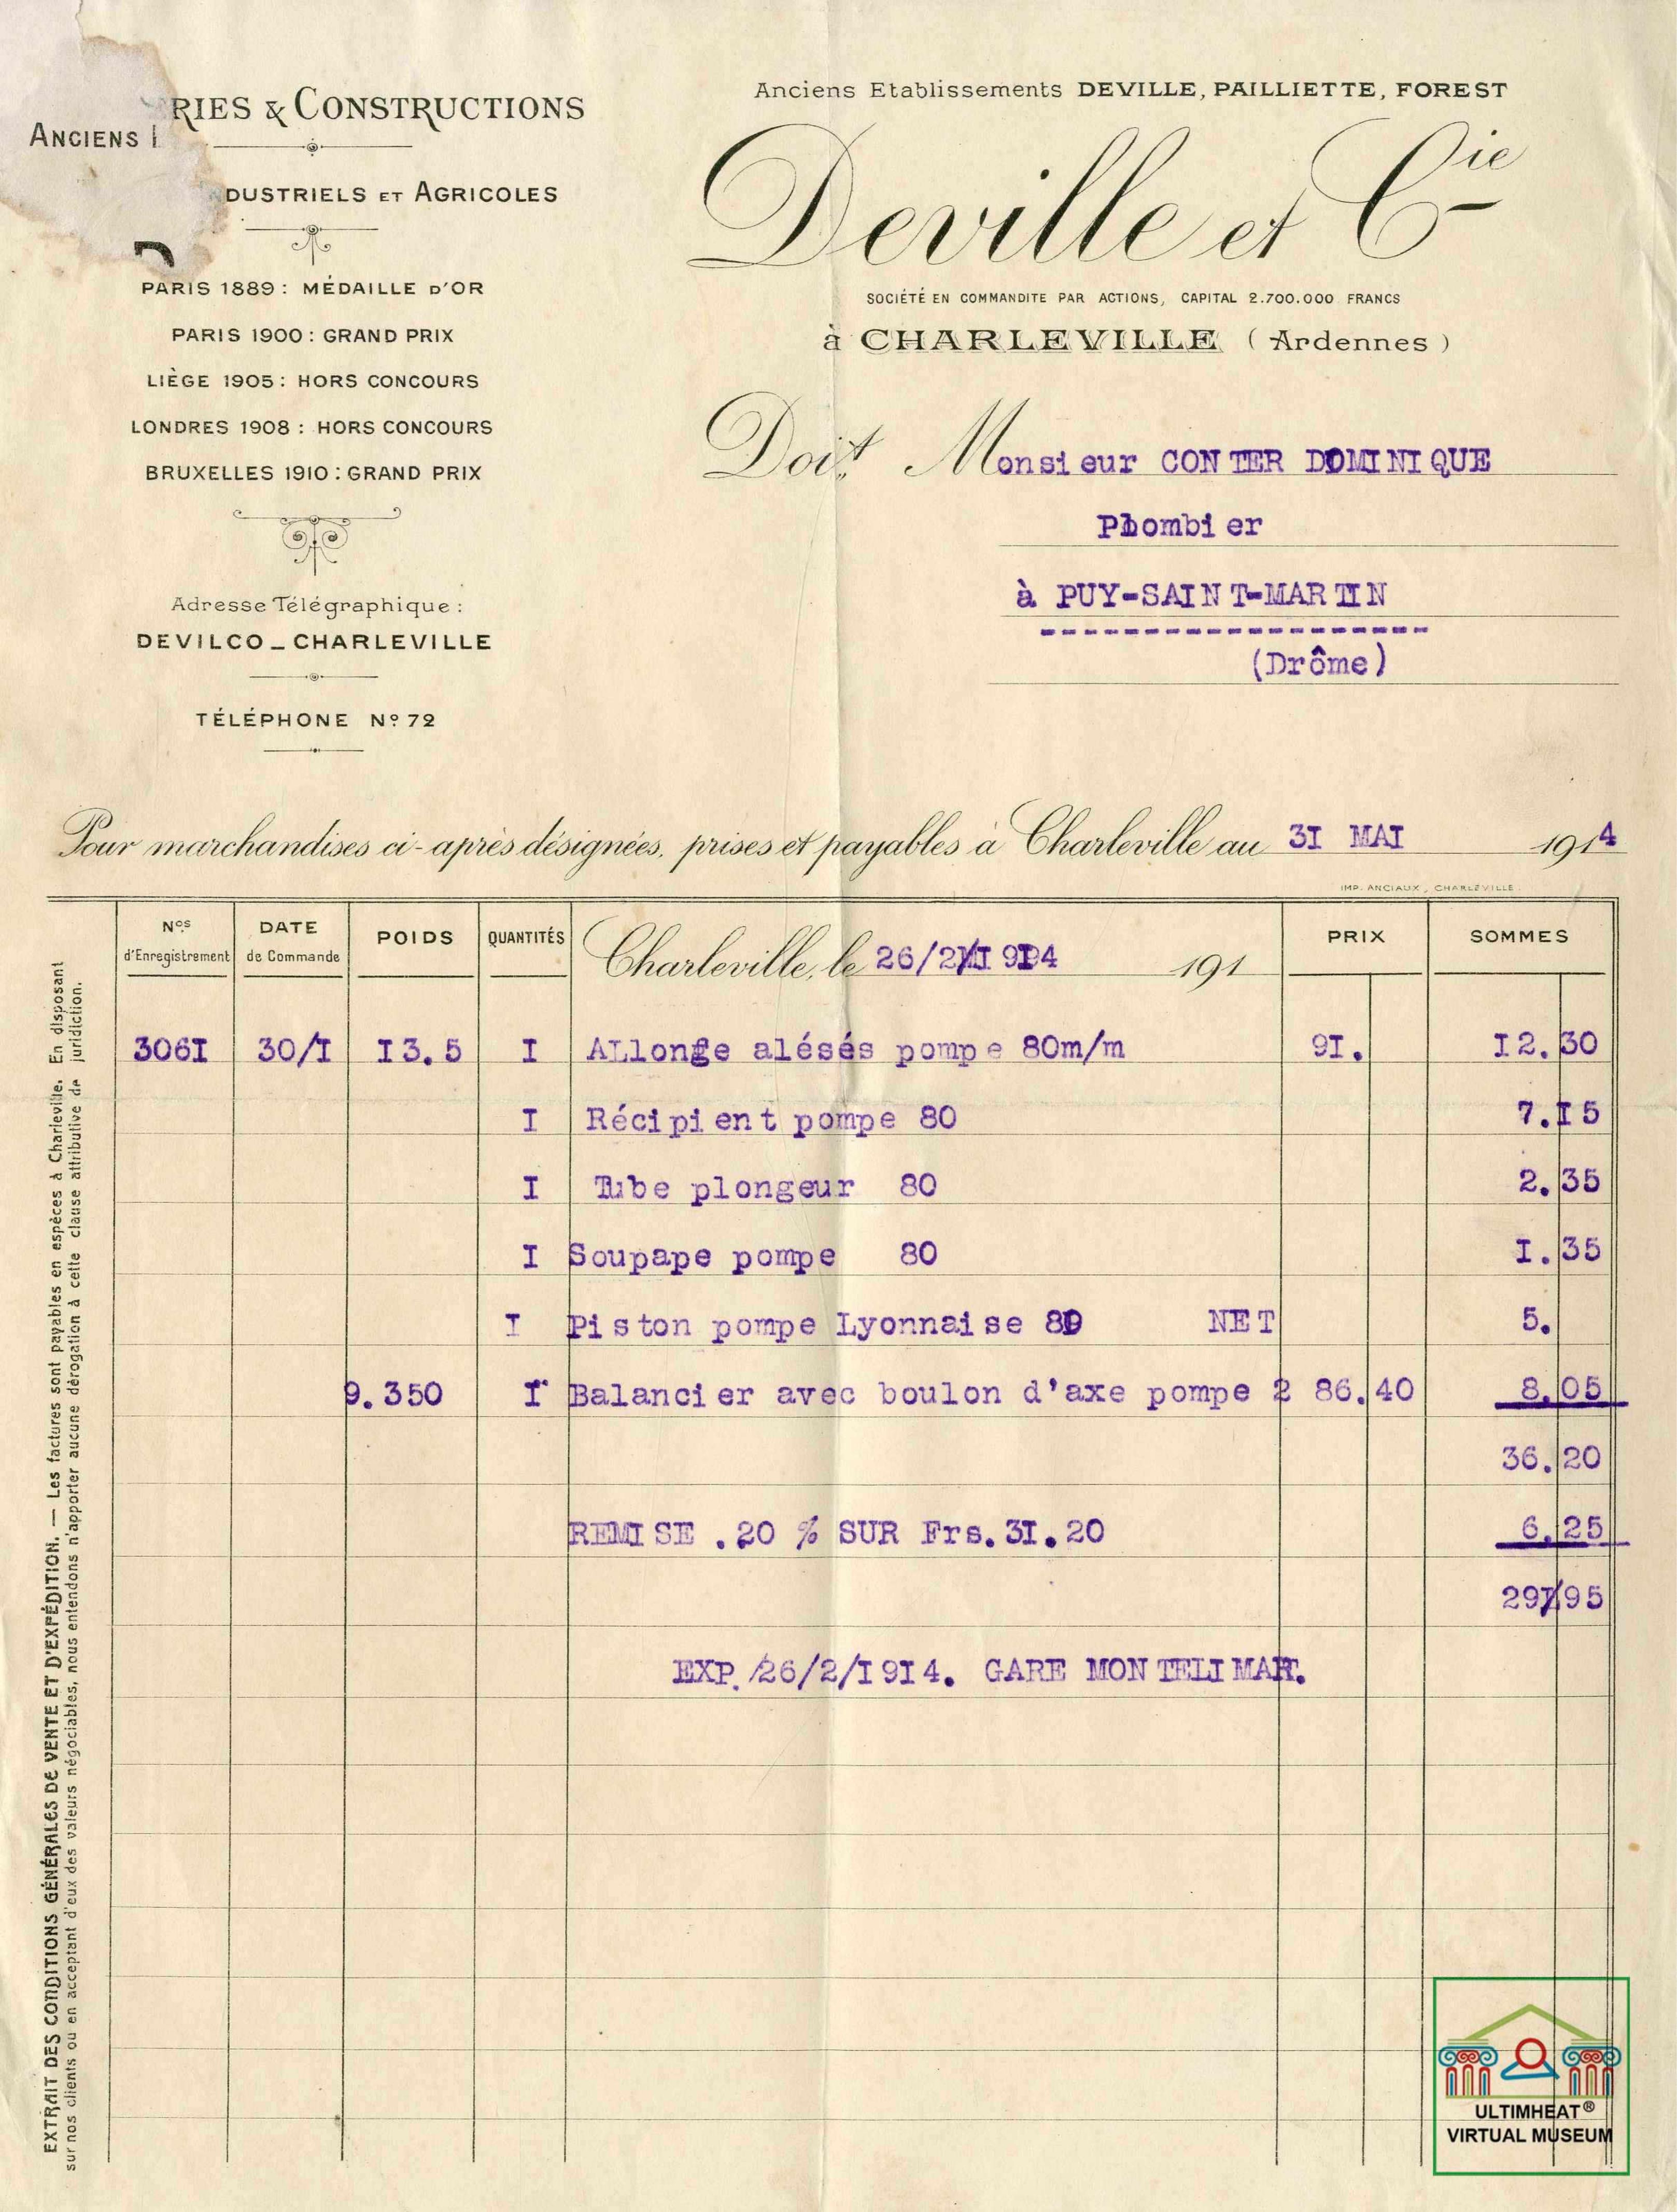 RIES & CONSTRUCTIONS
ANCIENS
DUSTRIELS ET AGRICOLES
PARIS 1889 : MÉDAILLE D'OR
PARIS 1900 : GRAND PRIX
LIÈGE 1905 : HORS CONCOURS
LONDRES 1908 : HORS CONCOURS
BRUXELLES 1910 : GRAND PRIX
Adresse Télégraphique :
DEVILCO _ CHARLEVILLE
TÉLÉPHONE Nº 72
Anciens Etablissements DEVILLE, PAILLIETTE, FOREST
Deville et Cie
SOCIÉTÉ EN COMMANDITE PAR ACTIONS, CAPITAL 2.700.000 FRANCS
à CHARLEVILLE ( Ardennes )
Doit Monsieur CONTER DOMINIQUE
Plombier
à PUY-SAINT-MARTIN
(Drôme)
Pour marchandises ci-après désignées, prises et payables à Charleville au 3I MAI 1914
IMP. ANCIAUX, CHARLEVILLE
Nos d'Enregistrement DATE de Commande POIDS QUANTITÉS Charleville, le 26/2/I914 191 PRIX SOMMES
306I 30/I I3.5 I ALlonge alésés pompe 80m/m 9I. I2.30
I Récipient pompe 80 7.I5
I Tube plongeur 80 2.35
I Soupape pompe 80 I.35
I Piston pompe Lyonnaise 80 NET 5.
9.350 I Balancier avec boulon d'axe pompe 2 86.40 8.05
36.20
REMISE .20 % SUR Frs.3I.20 6.25
29.95
EXP./26/2/I9I4. GARE MONTELIMAR.
EXTRAIT DES CONDITIONS GÉNÉRALES DE VENTE ET D'EXPÉDITION. — Les factures sont payables en espèces à Charleville. En disposant
sur nos clients ou en acceptant d'eux des valeurs négociables, nous entendons n'apporter aucune dérogation à cette clause attributive de juridiction.
ULTIMHEAT®
VIRTUAL MUSEUM